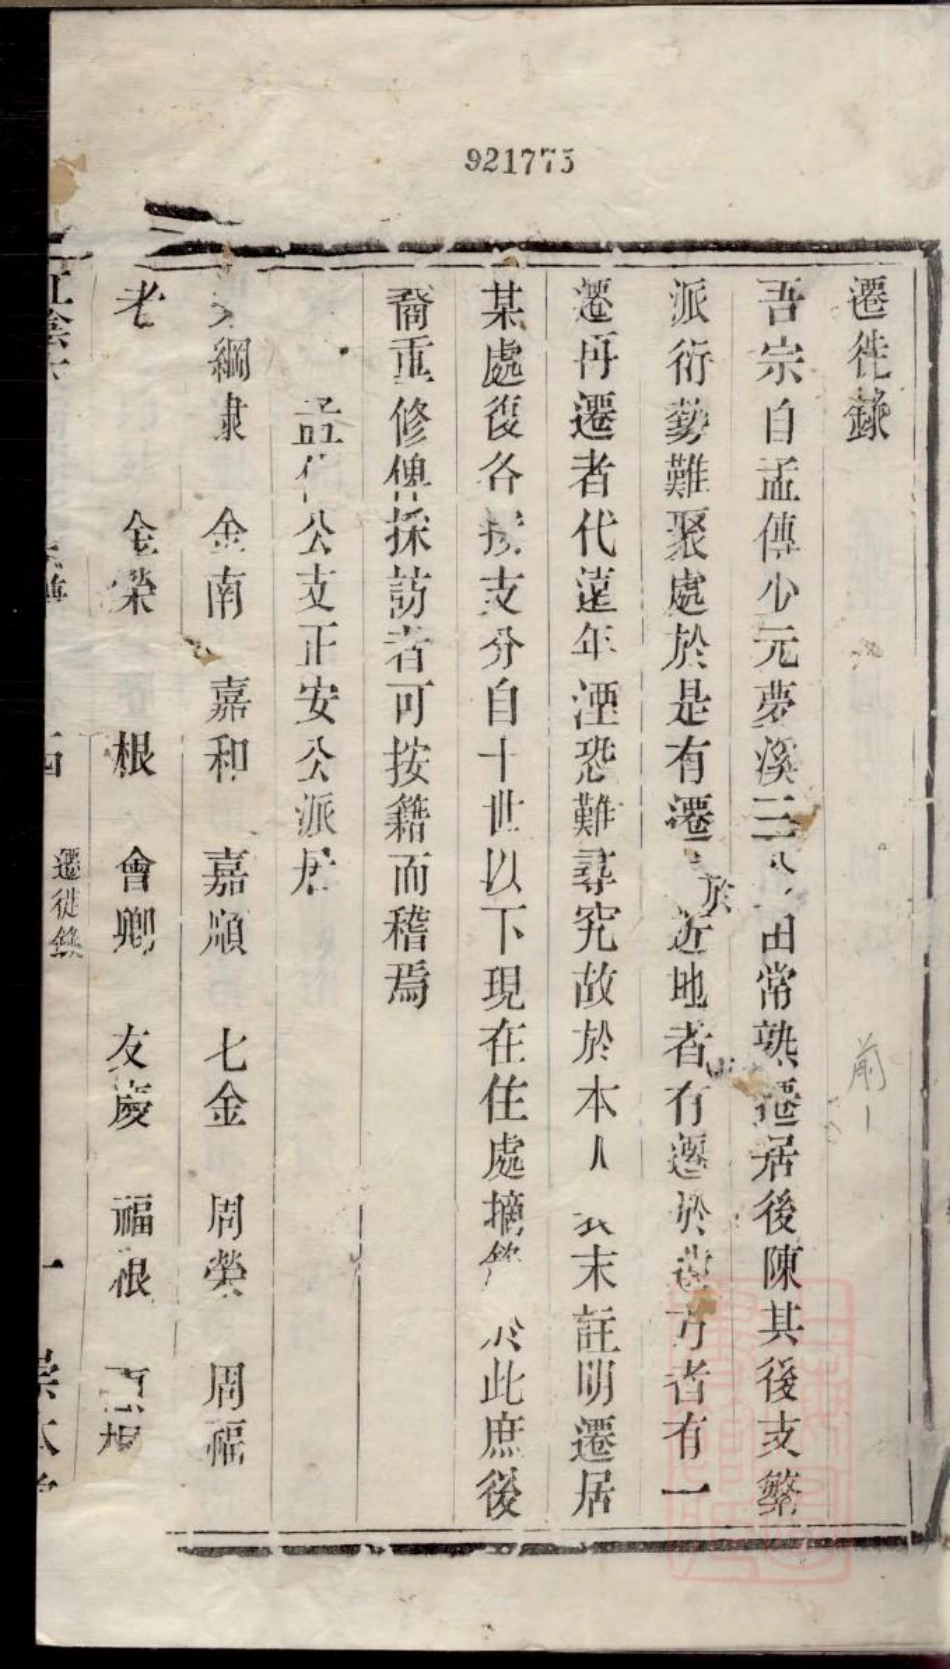 921775
遷徙錄
吾宗自孟傳少元夢溪三公由常熟遷居後陳其後支繁
派衍勢難聚處於是有遷於近地者有遷於遠方者有一
遷再遷者代遠年湮恐難尋究故於本人末註明遷居
某處復各按支分自十世以下現在住處摘錄於此庶後
裔重修俾採訪者可按籍而稽焉
孟公支正安公派居
綱隶 金南 嘉和 嘉順 七金 周榮 周福
老 全榮 根 會卿 友慶 福根 根
遷徙錄
一
前